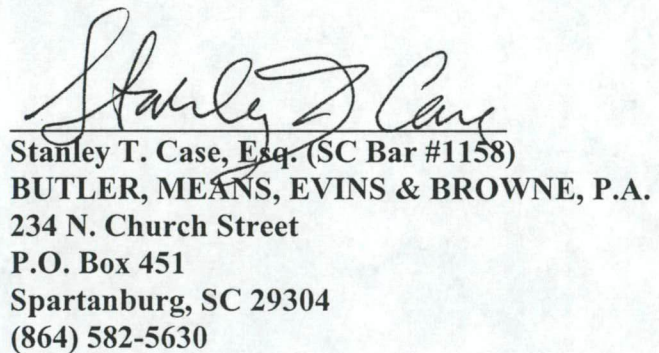 Stanley T. Case
Stanley T. Case, Esq. (SC Bar #1158)
BUTLER, MEANS, EVINS & BROWNE, P.A.
234 N. Church Street
P.O. Box 451
Spartanburg, SC 29304
(864) 582-5630